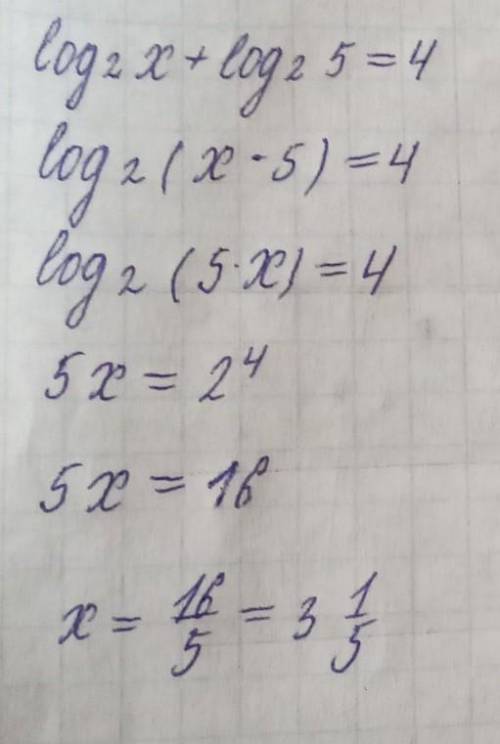 log₂ x + log₂ 5 = 4
log₂ (x · 5) = 4
log₂ (5 · x) = 4
5x = 2⁴
5x = 16
x = 16/5 = 3 1/5